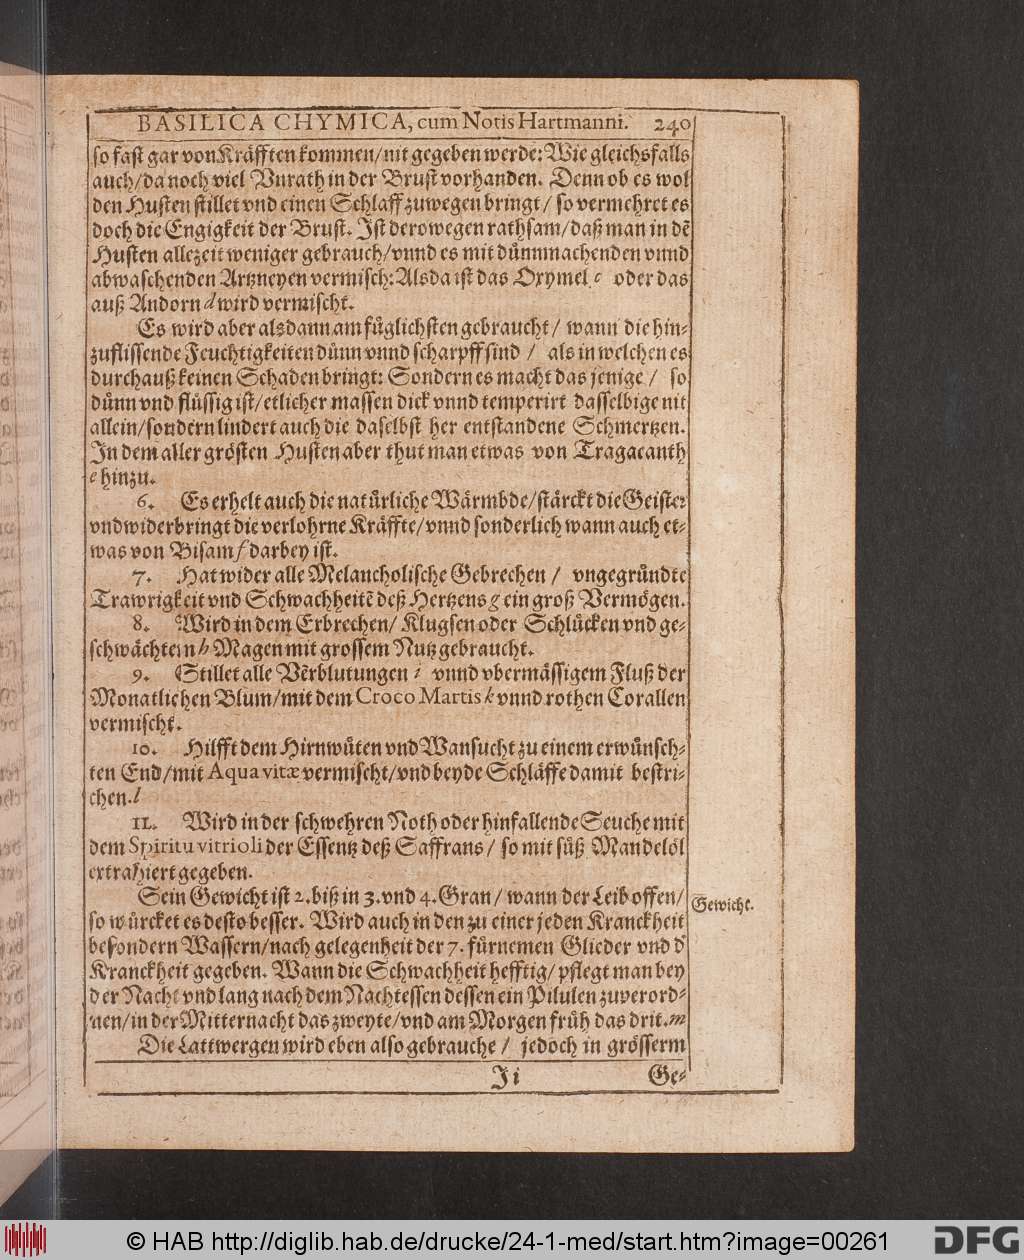 BASILICA CHYMICA, cum Notis Hartmanni. 240
so fast gar von Kräfften kommen/nit gegeben werde: Wie gleichsfalls
auch/da noch viel Vnrath in der Brust vorhanden. Denn ob es wol
den Husten stillet vnd einen Schlaff zuwegen bringt/ so vermehret es
doch die Engigkeit der Brust. Ist derowegen rathsam/daß man in dẽ
Husten allezeit weniger gebrauch/vnnd es mit dünnmachenden vnnd
abwaschenden Artzneyen vermisch: Als da ist das Oxymel c oder das
auß Andorn d wird vermischt.
Es wird aber alsdann am füglichsten gebraucht/ wann die hin-
zuflissende Feuchtigkeiten dünn vnnd scharpff sind / als in welchen es
durchauß keinen Schaden bringt: Sondern es macht das jenige / so
dünn vnd flüssig ist/etlicher massen dick vnnd temperirt dasselbige nit
allein/sondern lindert auch die daselbst her entstandene Schmertzen.
In dem aller grösten Husten aber thut man etwas von Tragacanth
e hinzu.
6. Es erhelt auch die natürliche Wärmbde/stärckt die Geister
vnd widerbringt die verlohrne Kräffte/vnnd sonderlich wann auch et-
was von Bisam f darbey ist.
7. Hat wider alle Melancholische Gebrechen / vngegründte
Trawrigkeit vnd Schwachheitẽ deß Hertzens g ein groß Vermögen.
8. Wird in dem Erbrechen/ Klugsen oder Schlücken vnd ge-
schwächtem h Magen mit grossem Nutz gebraucht.
9. Stillet alle Vẽrblutungen i vnnd vbermässigem Fluß der
Monatlichen Blum/mit dem Croco Martis k vnnd rothen Corallen
vermischt.
10. Hilfft dem Hirnwüten vnd Wansucht zu einem erwünsch-
ten End/mit Aqua vitæ vermischt/vnd beyde Schläffe damit bestri-
chen. l
11. Wird in der schwehren Noth oder hinfallende Seuche mit
dem Spiritu vitrioli der Essentz deß Saffrans/ so mit süß Mandelöl
extrahiert gegeben.
Sein Gewicht ist 2. biß in 3. vnd 4. Gran/ wann der Leib offen/
Gewicht.
so würcket es desto besser. Wird auch in den zu einer jeden Kranckheit
besondern Wassern/nach gelegenheit der 7. fürnemen Glieder vnd d'
Kranckheit gegeben. Wann die Schwachheit hefftig/ pflegt man bey
der Nacht vnd lang nach dem Nachtessen dessen ein Pilulen zuverord-
nen/in der Mitternacht das zweyte/vnd am Morgen früh das drit. m
Die Lattwergen wird eben also gebrauche / jedoch in grösserm
Ii Ge-
© HAB http://diglib.hab.de/drucke/24-1-med/start.htm?image=00261
DFG